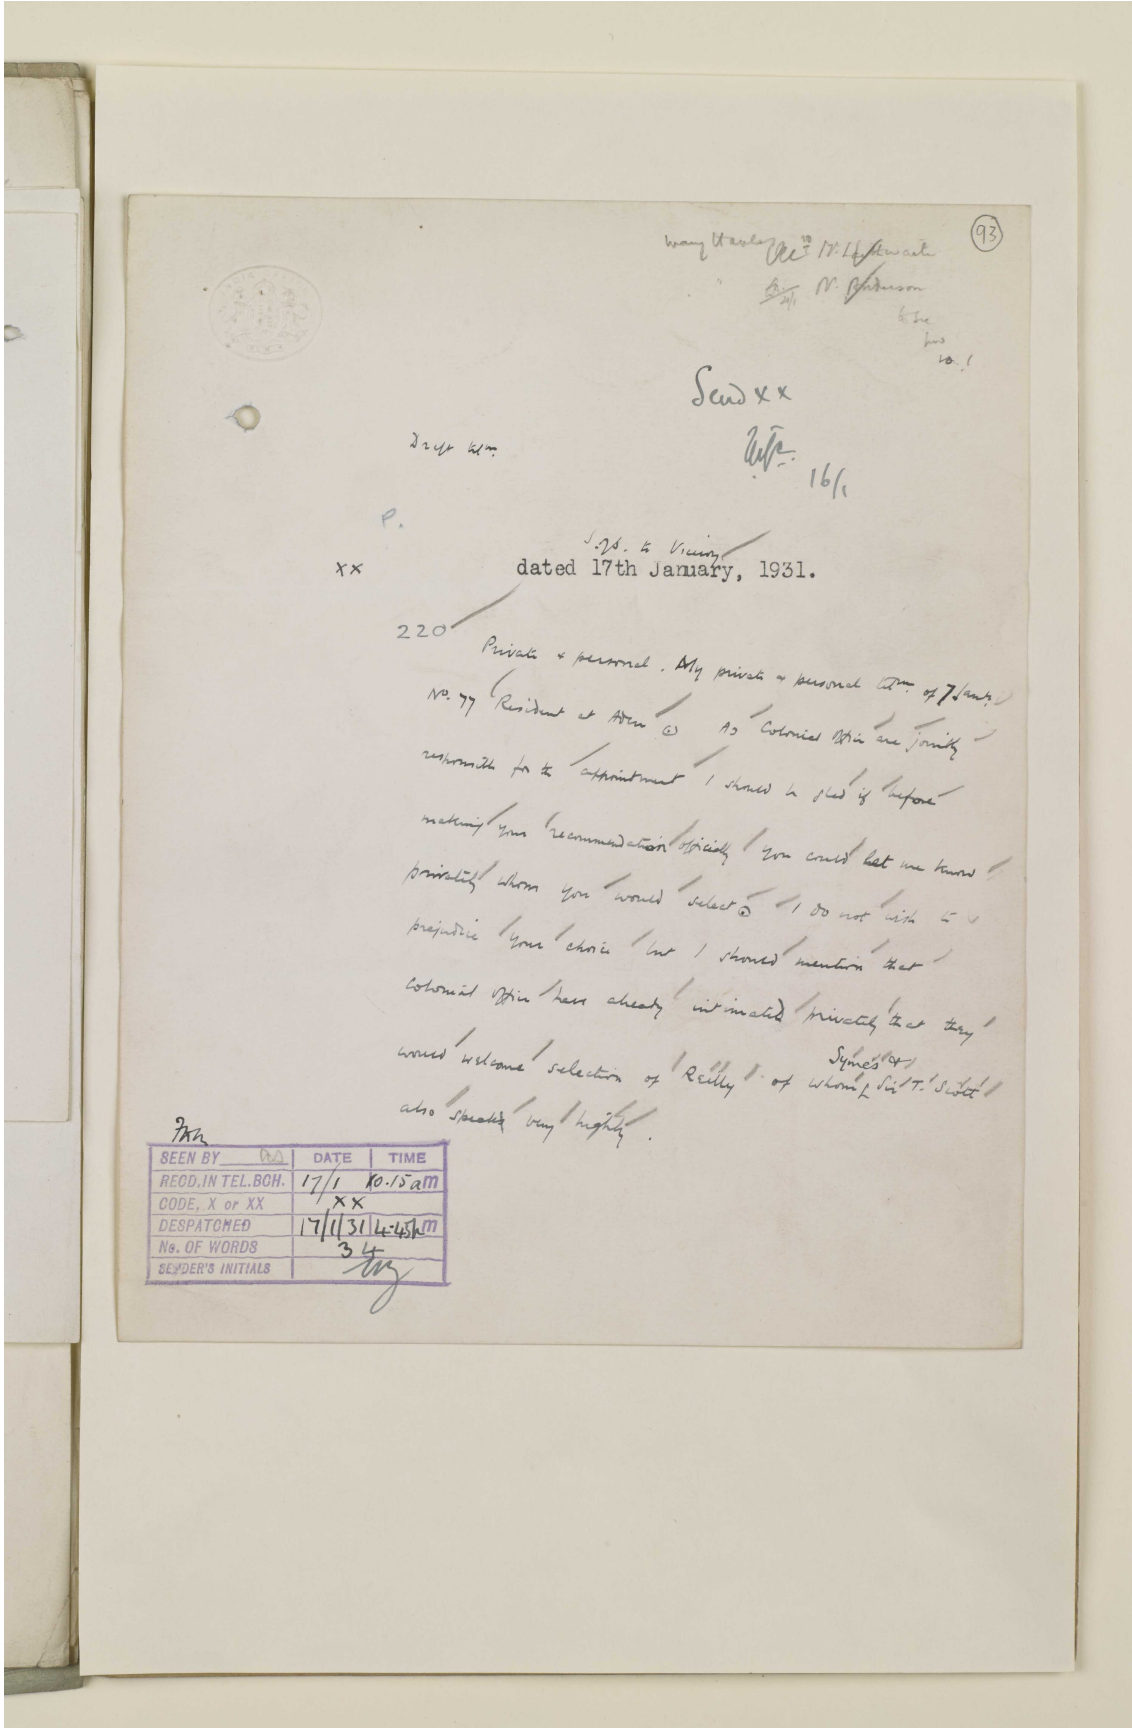 93
Send xx
16/1
Draft telm.
P.
S. of S. to Viceroy
xx dated 17th January, 1931.
220
Private & personal. My private & personal telm. of 7 Jany.
No. 77 Resident at Aden ⊙ As Colonial Office are jointly
responsible for the appointment I should be glad if before
making your recommendation officially you could let me know
privately whom you would select ⊙ I do not wish to
prejudice your choice but I should mention that
Colonial Office have already intimated privately that they
would welcome selection of Reilly of whom Symes & Sir T. Scott
also speak very highly.
SEEN BY DATE TIME
RECD. IN TEL. BCH. 17/1 10.15 am
CODE, X or XX xx
DESPATCHED 17/1/31 4.45 pm
No. OF WORDS 34
SENDER'S INITIALS